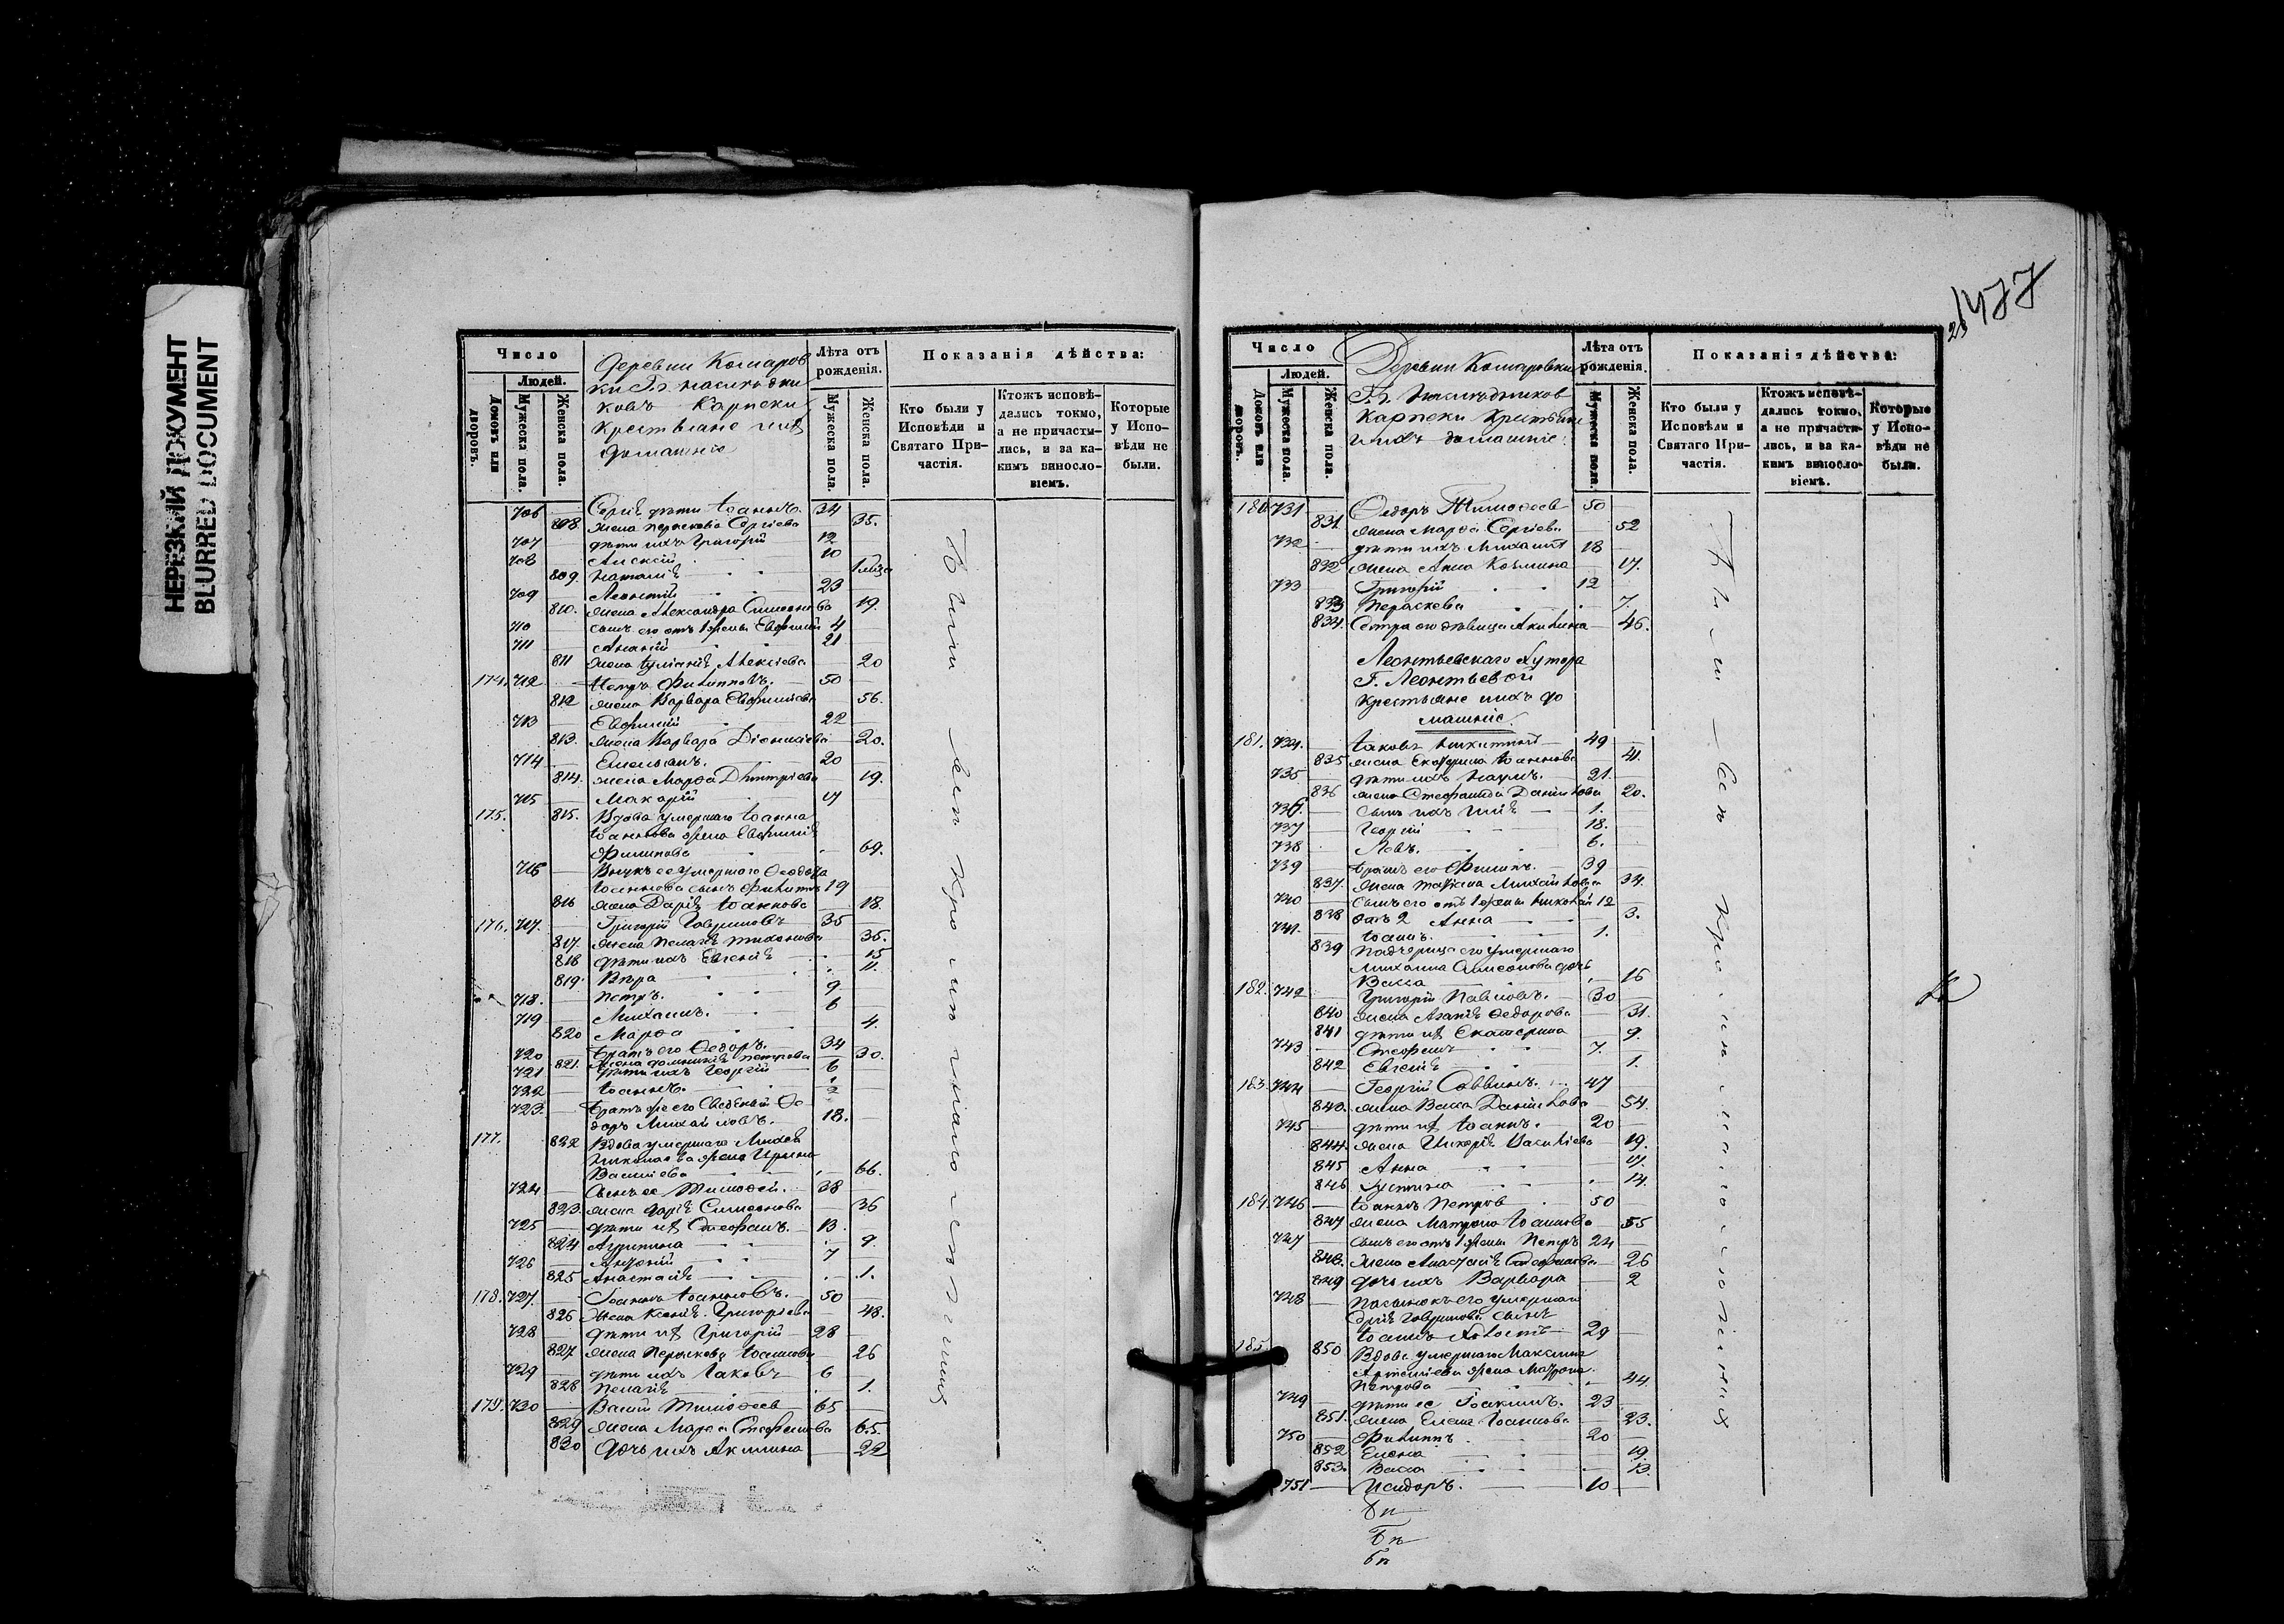 НЕРЕЗКИЙ ДОКУМЕНТ
BLURRED DOCUMENT
Число
Людей.
Домовъ или дворовъ.
Мужеска пола.
Женска пола.
Деревни Комаров
ки Гг. наслѣдни
ковъ Карпеки
Крестьяне и ихъ
домашніе
Лѣта отъ рожденія.
Мужеска пола.
Женска пола.
Показанія дѣйства:
Кто были у Исповѣди и Святаго Причастія.
Ктожъ исповѣдались токмо, а не причастились, и за какимъ винословіемъ.
Которые у Исповѣди не были.
706 Сергій дѣти Іоанна 34
808 Жена Параскева Сергіева 35.
707 дѣти ихъ Григорій 12
708 Алексій 10
809. Наталія
709 Леонтій 23
810. Жена Александра Симеонова 19.
710 сынъ его отъ 1 жены Евфимій 4
711 Ананій 21
811 Жена Іуліанія Алексіева 20
174. 712 Петръ Филипповъ. 50
812 Жена Варвара Евфиміева 56.
713 Евфимій 22
813. Жена Варвара Діонисіева 20.
714 Емельянъ. 20
814. Жена Марфа Дмитріева 19.
715 Макарій 17
175. 815. Вдова умершаго Іоанна
Іоаннова жена Евфимія
Филипова 69.
716 Внукъ ее умершаго Феодора
Іоаннова сынъ Филиппъ 19
816 Жена Дарія Іоаннова 18.
176. 717. Григорій Гавриловъ 35
817. Жена Пелагія Тихонова 35.
818 дѣти ихъ Евгенія 15
819. Вѣра 11.
718. Петръ. 9
719 Михаилъ. 6
820 Марфа 4.
720 Братъ его Ѳедоръ. 34
821. Жена Домникія Петрова 30.
721 дѣти ихъ Георгій 6
722 Іоаннъ. 2
723. Братъ же его Сведеный Ѳе
доръ Михайловъ. 18.
177. 822 Вдова умершаго Михея
Николаева жена Ирина
Васильева 66.
724 Сынъ ее Тимофей. 38
823. Жена Дарія Симеонова 36
725 дѣти ихъ Стефанъ. 13.
824 Агрипина 9.
726 Антоній 7
825 Анастасія 1.
178. 727. Іоаннъ Іоанновъ. 50
826 Жена Ксенія Григоріева 48.
728 дѣти ихъ Григорій 28
827 Жена Параскева Іоаннова 26
729 дѣти ихъ Іаковъ 6
828 Пелагія 1.
179. 730 Василій Тимофеев 65
829 Жена Марфа Стефанова 65.
830 дочь ихъ Акилина 22
1477
Число
Людей.
Домовъ или дворовъ.
Мужеска пола.
Женска пола.
Деревни Комаровки
Гг. Наслѣдников
Карпеки Крестьяне
и ихъ домашніе
Лѣта отъ рожденія.
Мужеска пола.
Женска пола.
Показанія дѣйства:
Кто были у Исповѣди и Святаго Причастія.
Ктожъ исповѣдались токмо, а не причастились, и за какимъ винословіемъ.
Которые у Исповѣди не были.
180 731 Ѳедоръ Тимофеев 50
831. Жена Марфа Сергіева 52
732 дѣти ихъ Михаилъ 18
832 Жена Анна Козмина 17.
733 Григорій 12
833 Параскева 7.
834. Сестра его дѣвица Акилина 46.
Леонтьевскаго Хутора
Г. Леонтьевой
Крестьяне и ихъ до
машніе.
181. 734. Іаковъ Никитинъ 49
835 Жена Екатерина Іоаннова 41.
735 дѣти ихъ Наумъ. 21.
836 Жена Стефанида Данилова 20.
736. сынъ ихъ Илія 1.
737 Георгій 18.
738 Левъ. 6.
739 Братъ его Филипъ. 39
837. Жена Татіана Михайлова 34.
740 Сынъ его отъ 1 жены Николай 12
838 отъ 2 Анна 3.
741. Іоаннъ. 1.
839 Падчерица его умершаго
Михаила Симеонова дочь
Васса 16
182. 742. Григорій Павловъ. 30
840 Жена Агафія Ѳедорова 31.
841 дѣти ихъ Екатерина 9.
743 Стефанъ 7.
842 Евгенія 1.
183. 744 Георгій Саввинъ. 47
843. Жена Васса Данилова 54.
745 дѣти ихъ Іоаннъ. 20
844. Жена Гликерія Васильева 19.
845 Анна 17.
846 Іустина 14.
184. 746 Іоаннъ Петров 50
847 Жена Матрона Іоаннова 55
747 Сынъ его отъ 1 жены Петръ 24
848. Жена Анастасія Стефанова 26
849 дочь ихъ Варвара 2
748 Пасынокъ его умершаго
Гаврилова сынъ
Іоаннъ 29
185. 850 Вдова умершаго Максима
Артеміева жена Матрона
Петрова 44.
749 дѣти ее Іоакимъ. 23
851. Жена Елена Іоаннова 23.
750 Филиппъ 20
852 Елена 19.
853. Васса 13.
751 Исидоръ. 10